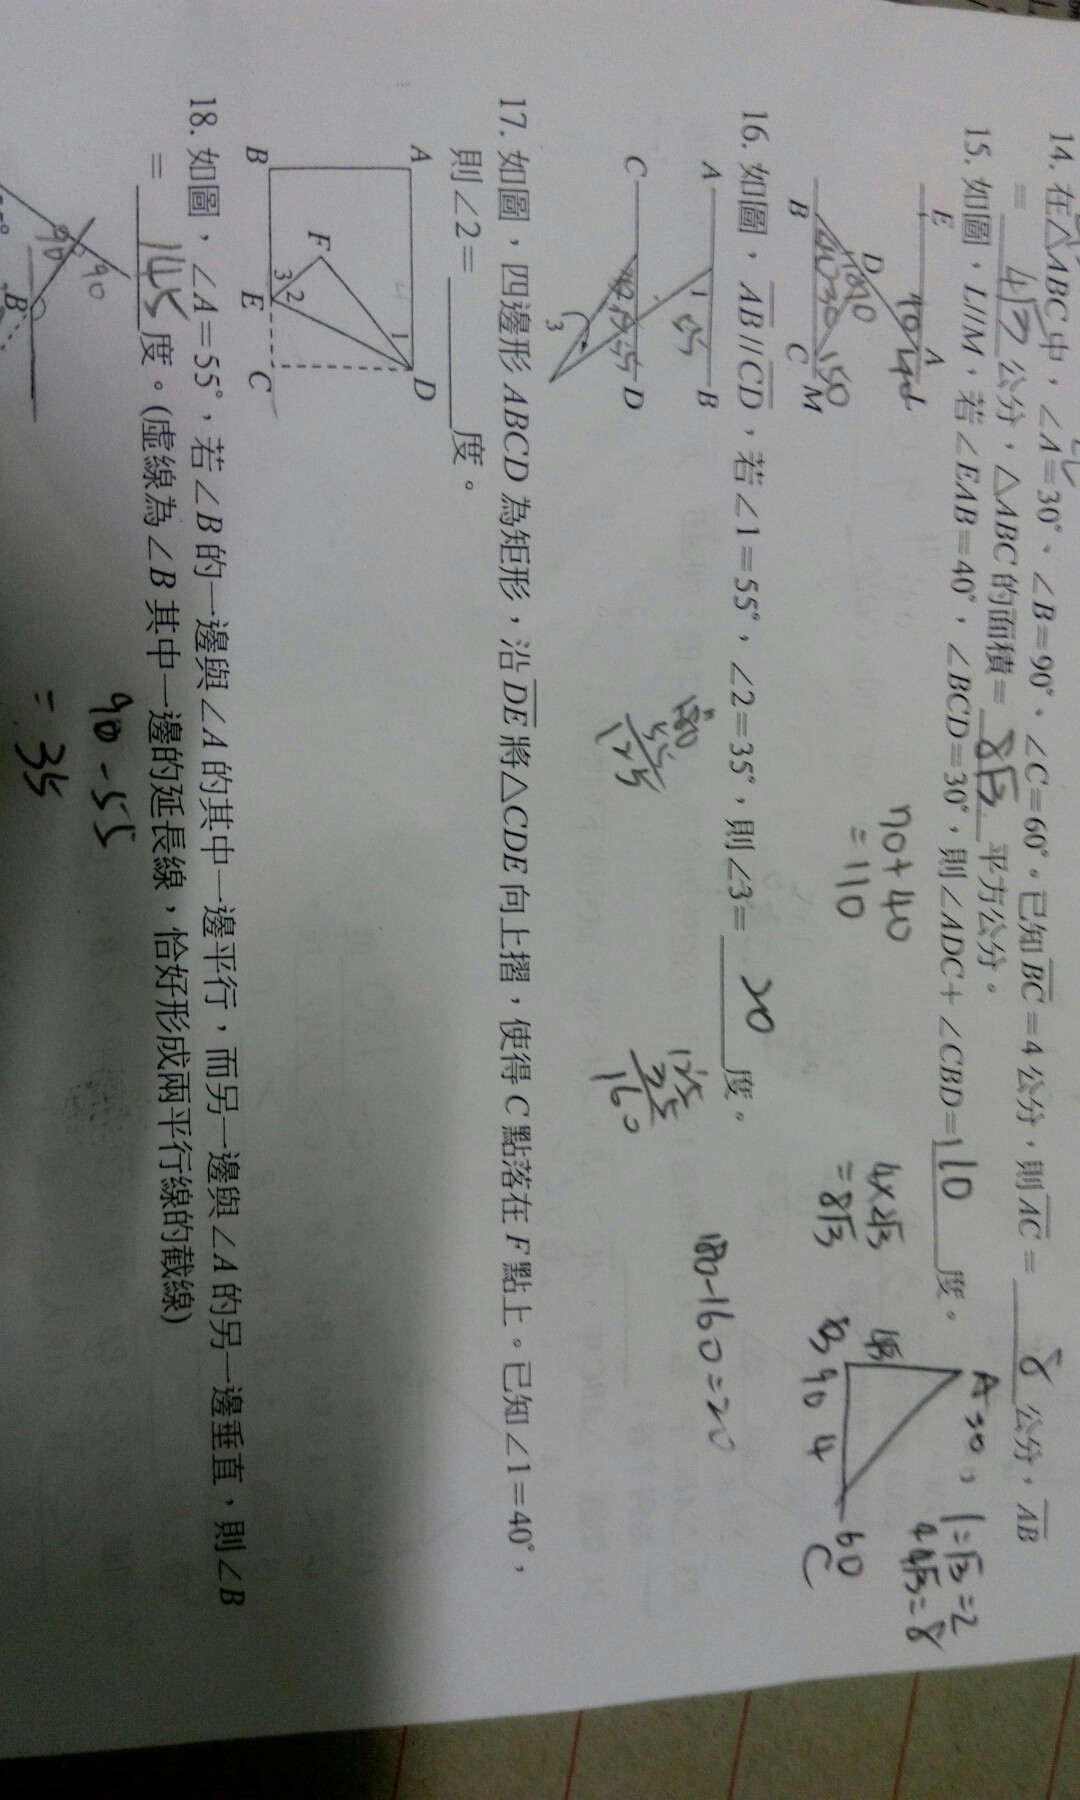 14. 在△ABC中，∠A=30°、∠B=90°、∠C=60°。已知BC=4公分，則AC= 8 公分，AB
= 4√3 公分，△ABC的面積= 8√3 平方公分。
15. 如圖，L//M，若∠EAB=40°，∠BCD=30°，則∠ADC+∠CBD= 110 度。
E A
D
B C M
40
150
70+40
=110
4×2√3
=8√3
A 30
4√3
B 90 4
60
C
1=√3=2
4 4√3=8
16. 如圖，AB//CD，若∠1=55°，∠2=35°，則∠3= 20 度。
A 1 B
55
C 2 D
3
180
55
125
125
35
160
180-160=20
17. 如圖，四邊形ABCD為矩形，沿DE將△CDE向上摺，使得C點落在F點上。已知∠1=40°，
則∠2= 度。
A D
1
F
3 2
B E C
18. 如圖，∠A=55°，若∠B的一邊與∠A的其中一邊平行，而另一邊與∠A的另一邊垂直，則∠B
= 145 度。(虛線為∠B其中一邊的延長線，恰好形成兩平行線的截線)
90 90
B
90-55
=35